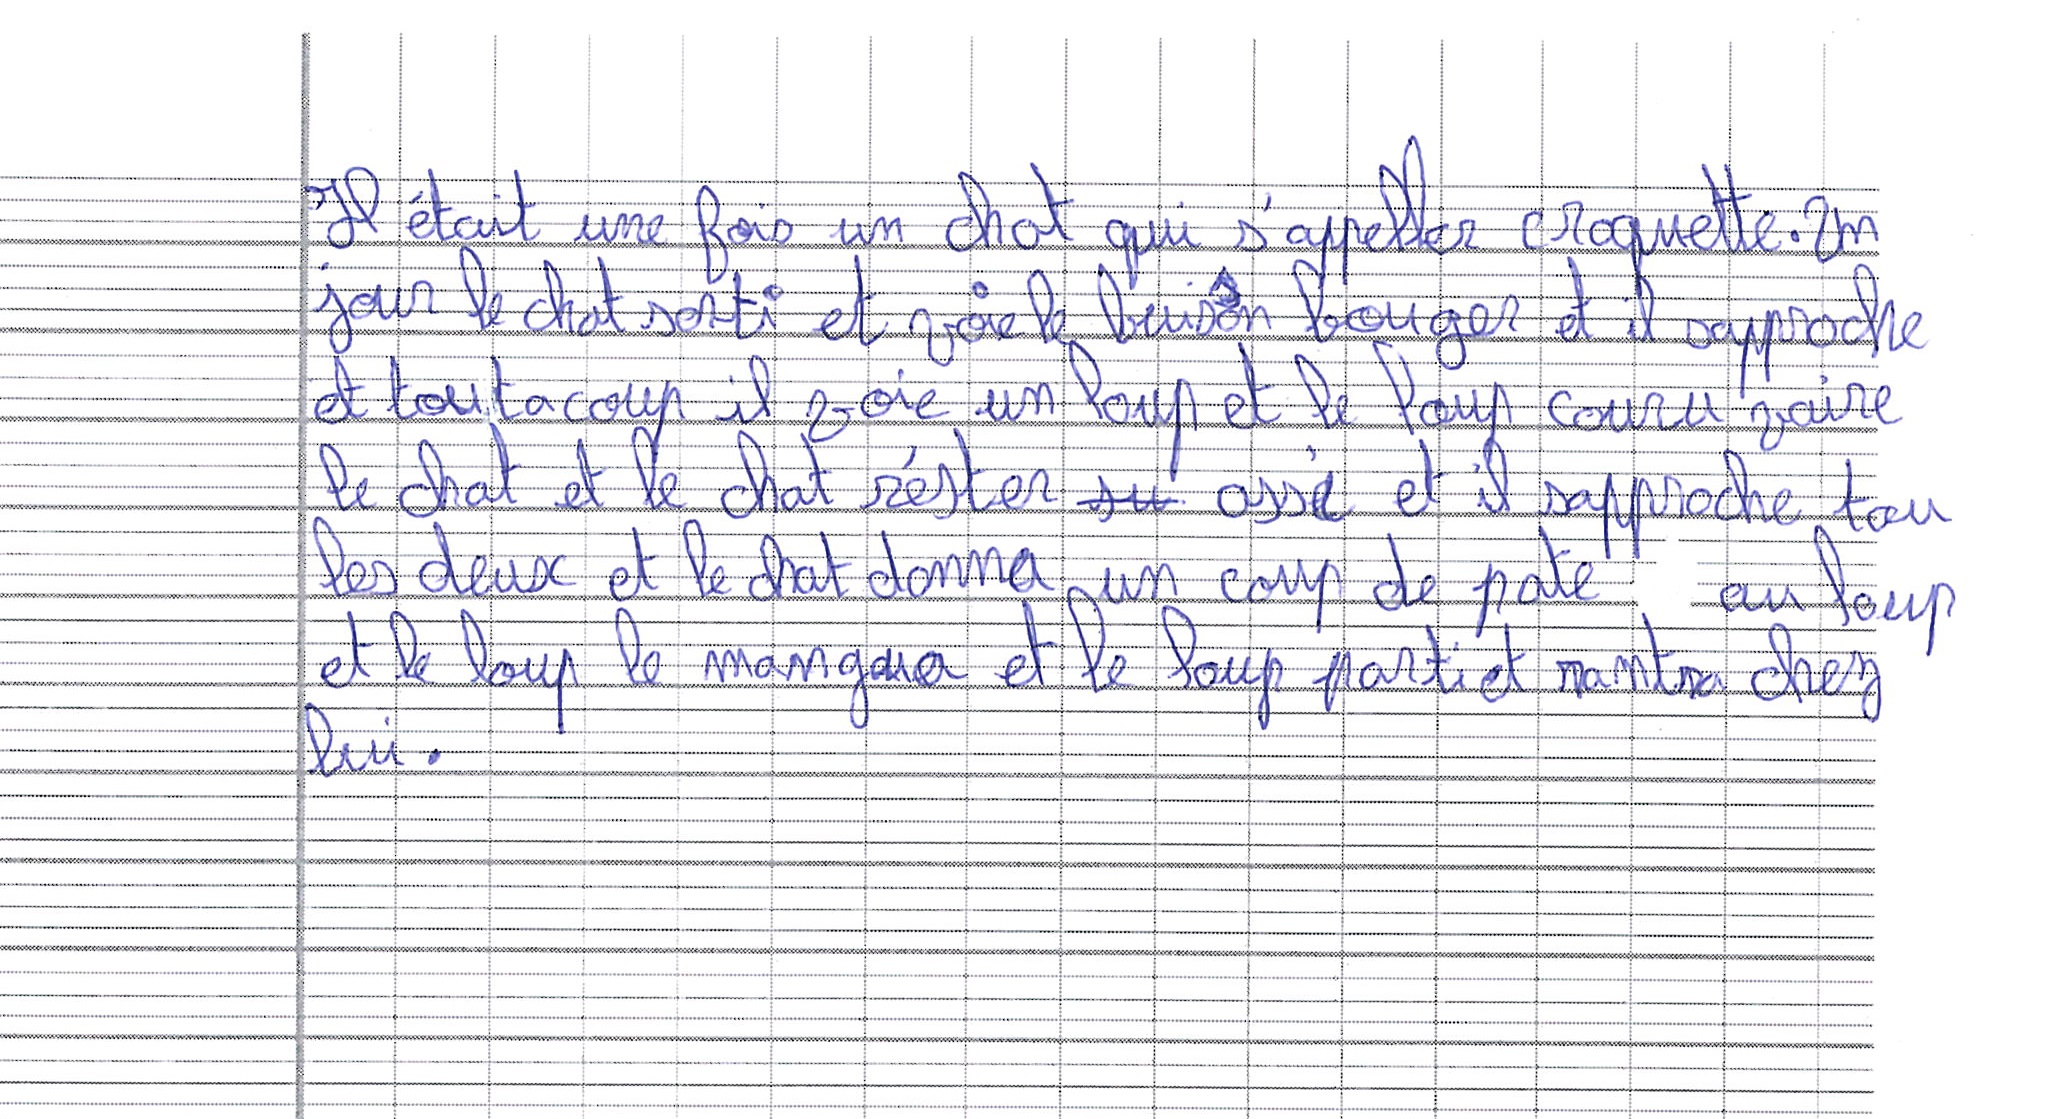 Il était une fois un chat qui s'appeller croquette. Un
jour le chat sorti et voie le buisôn bouger et il sapproche
et toutacoup il voie un loup et le loup couru vaire
le chat et le chat réster su assi et il sapproche tou
les deux et le chat donna un coup de pate au loup
et le loup le mangea et le loup parti et rantra chez
lui.